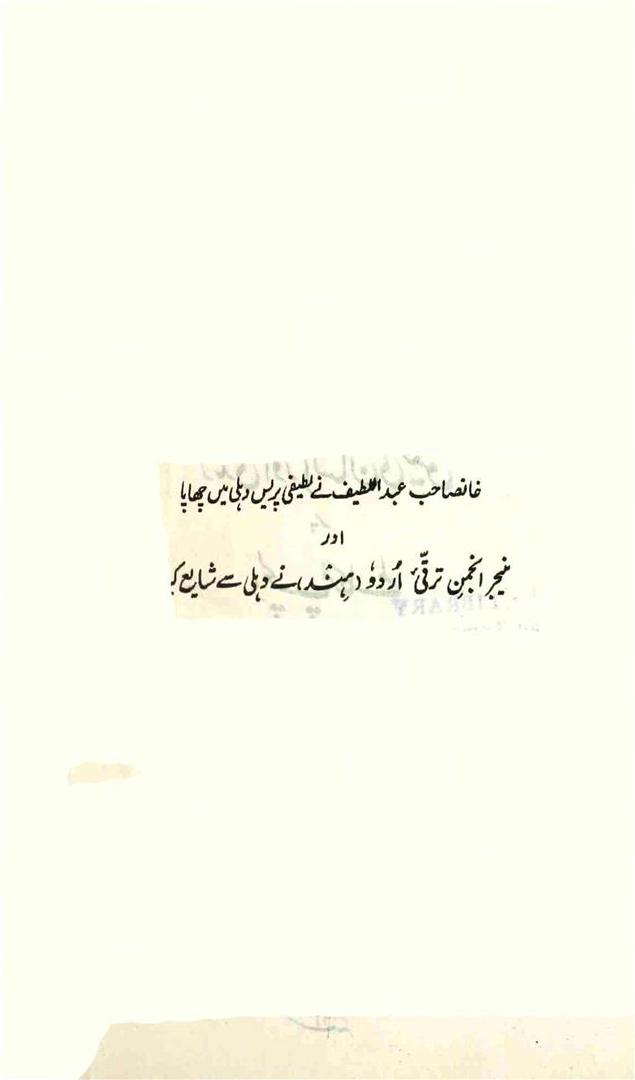 خانصاحب عبداللطیف نے لطیفی پریس دہلی میں چھاپا
اور
منیجر انجمن ترقّیٔ اُردوٗ (ہِند) نے دہلی سے شایع کیا
LIBRARY